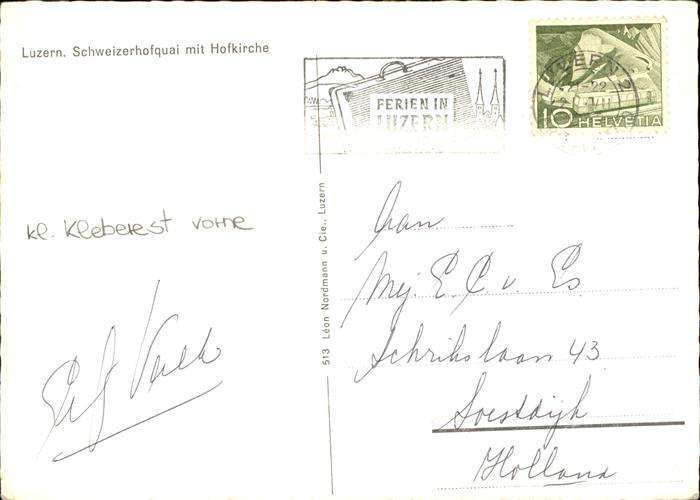 Luzern. Schweizerhofquai mit Hofkirche
FERIEN IN
LUZERN
LUZERN 2
-22
VII
10 HELVETIA
kl. Kleberest vorne
513 Léon Nordmann u. Cie., Luzern
Aan
Mej. E. C. v. Es
Schrikslaan 43
Soestdijk
Holland